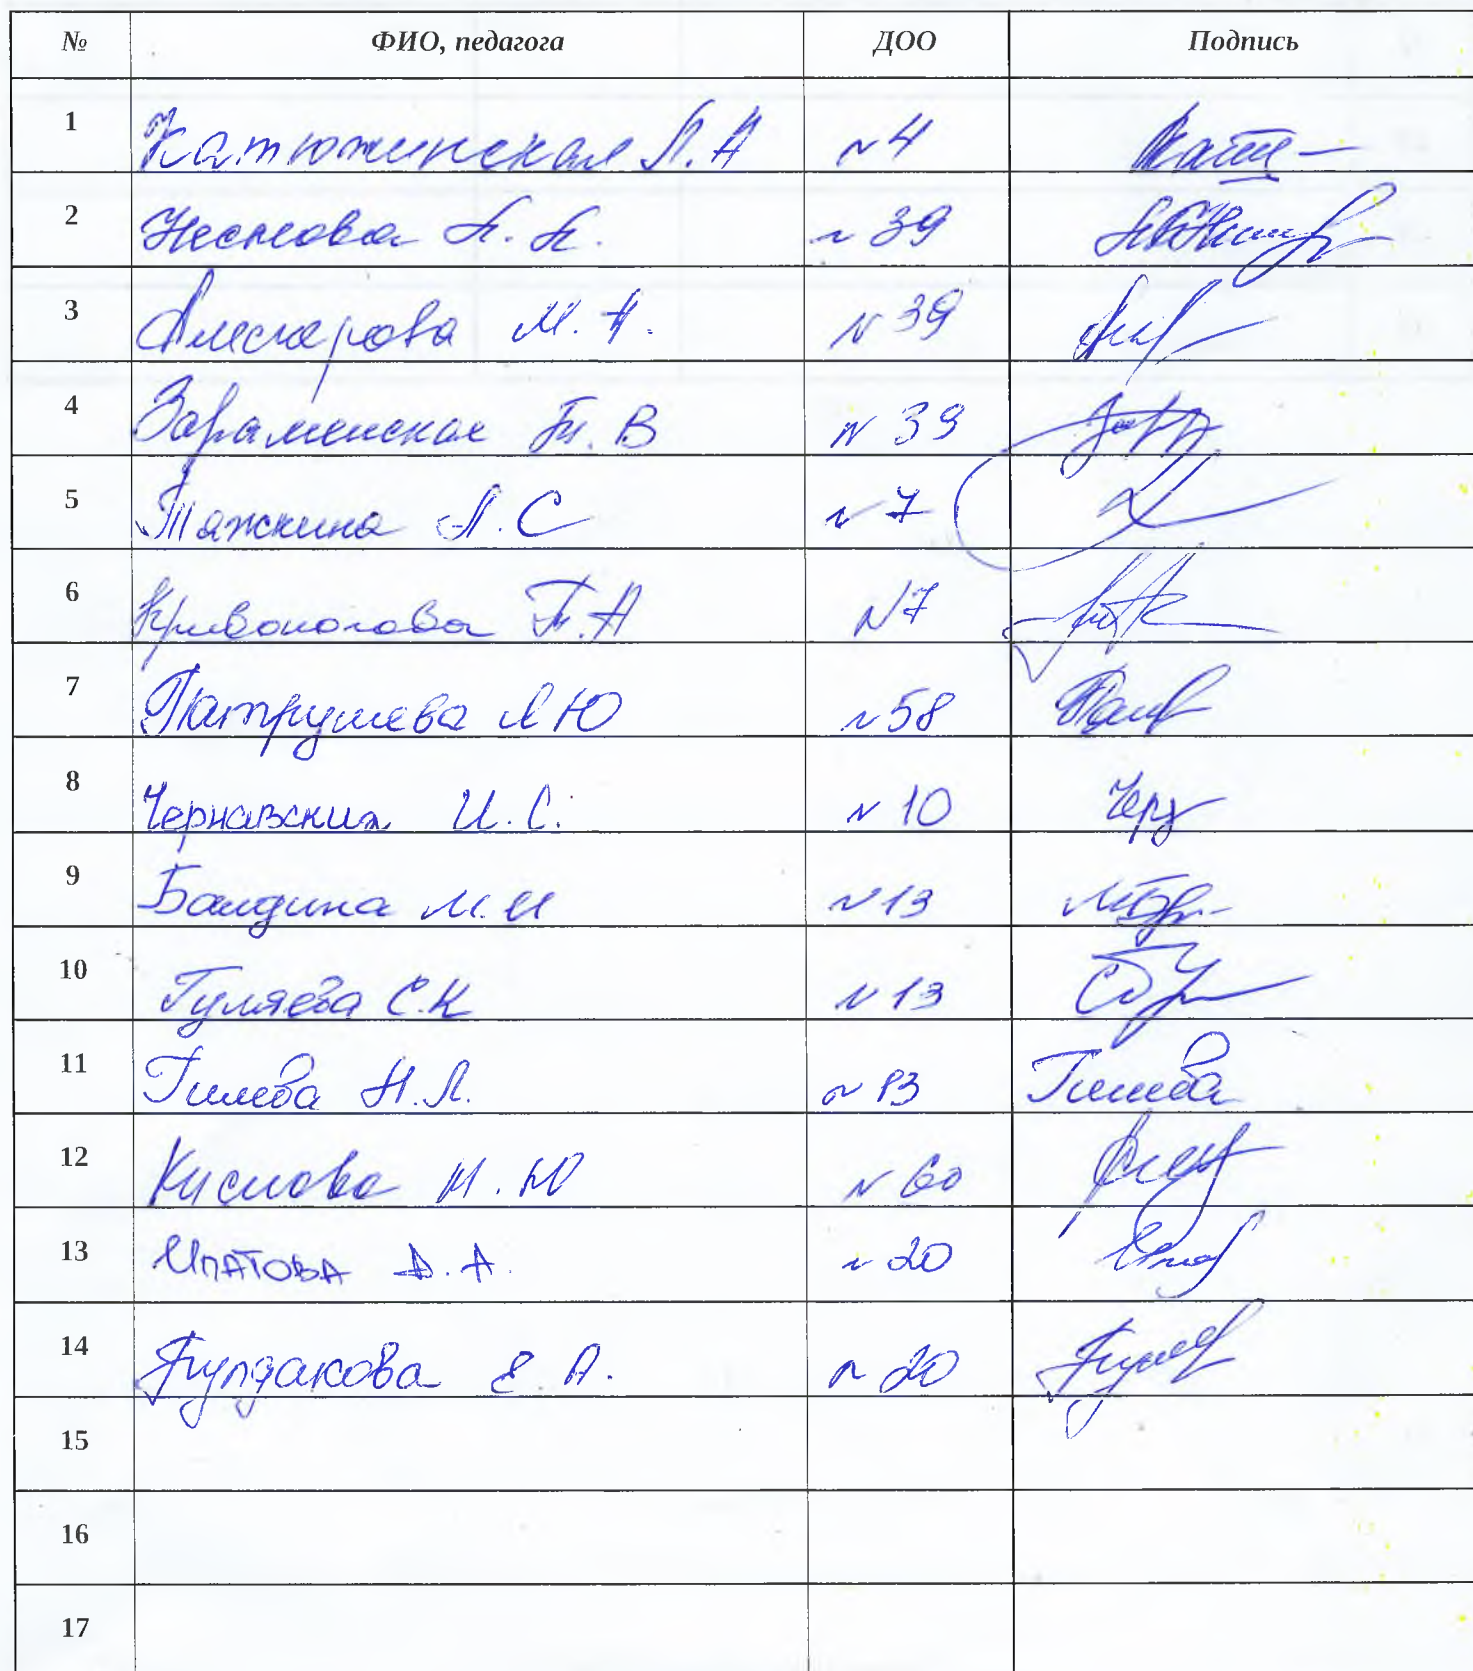 № ФИО, педагога ДОО Подпись
1 Катюжинская Л.А №4
2 №39
3 Алескарова М.А. №39
4 Зараменская Т.В №39
5 Пажкина Л.С №7
6 Кривоногова Т.А №7
7 Патрушева Л Ю №58
8 Чернавских И.С. №10
9 Балдина М.И №13
10 Гуляева С.К №13
11 Гилева Н.Л. №13 Гилева
12 Кислова М.Ю №60
13 Ипатова А.А. №20
14 Пулдакова Е А. №20
15
16
17